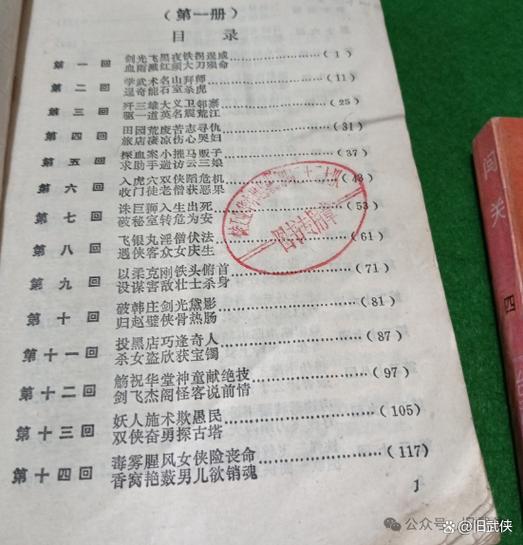 （第一册）
目录
第一回 剑光飞黑夜铁拐逞威
血雨溅红颜大刀殒命 （1）
第二回 学武术名山拜师
逞奇能石室杀虎 （11）
第三回 歼三雄大义卫邻寨
驱一道英名震荒江 （25）
第四回 田园荒废苦志寻仇
旅店凄凉伤心哭妇 （31）
第五回 探血案小推马贩子
求助手遍访云三娘 （37）
第六回 入虎穴双侠蹈危机
收门徒老僧获恶果 （43）
第七回 诛巨狮入生出死
破秘室转危为安 （53）
第八回 飞银丸淫僧伏法
遇侠客众女庆生 （61）
第九回 以柔克刚铁头俯首
设谋害敌壮士杀身 （71）
第十回 破韩庄剑光黛影
归赵璧侠骨热肠 （81）
第十一回 投黑店巧逢奇人
杀女盗欣获宝镯 （87）
第十二回 觞祝华堂神童献绝技
剑飞杰阁怪客说前情 （97）
第十三回 妖人施术欺愚民
双侠奋勇探古塔 （105）
第十四回 毒雾腥风女侠险丧命
香窝艳薮男儿欲销魂 （117）
1
图书专用章
闯关
四
公众号
@旧武侠